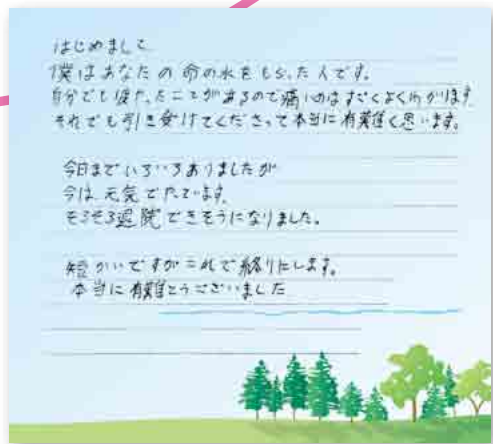 はじめまして
僕はあなたの命の水をもらった人です。
自分でも痛かったことがあるので痛いのはすごくよくわかります
それでも引き受けてくださって本当に有難く思います。
今日までいろいろありましたが
今は元気でたています。
そろそろ退院できそうになりました。
短かいですがこれで終りにします。
本当に有難とうございました